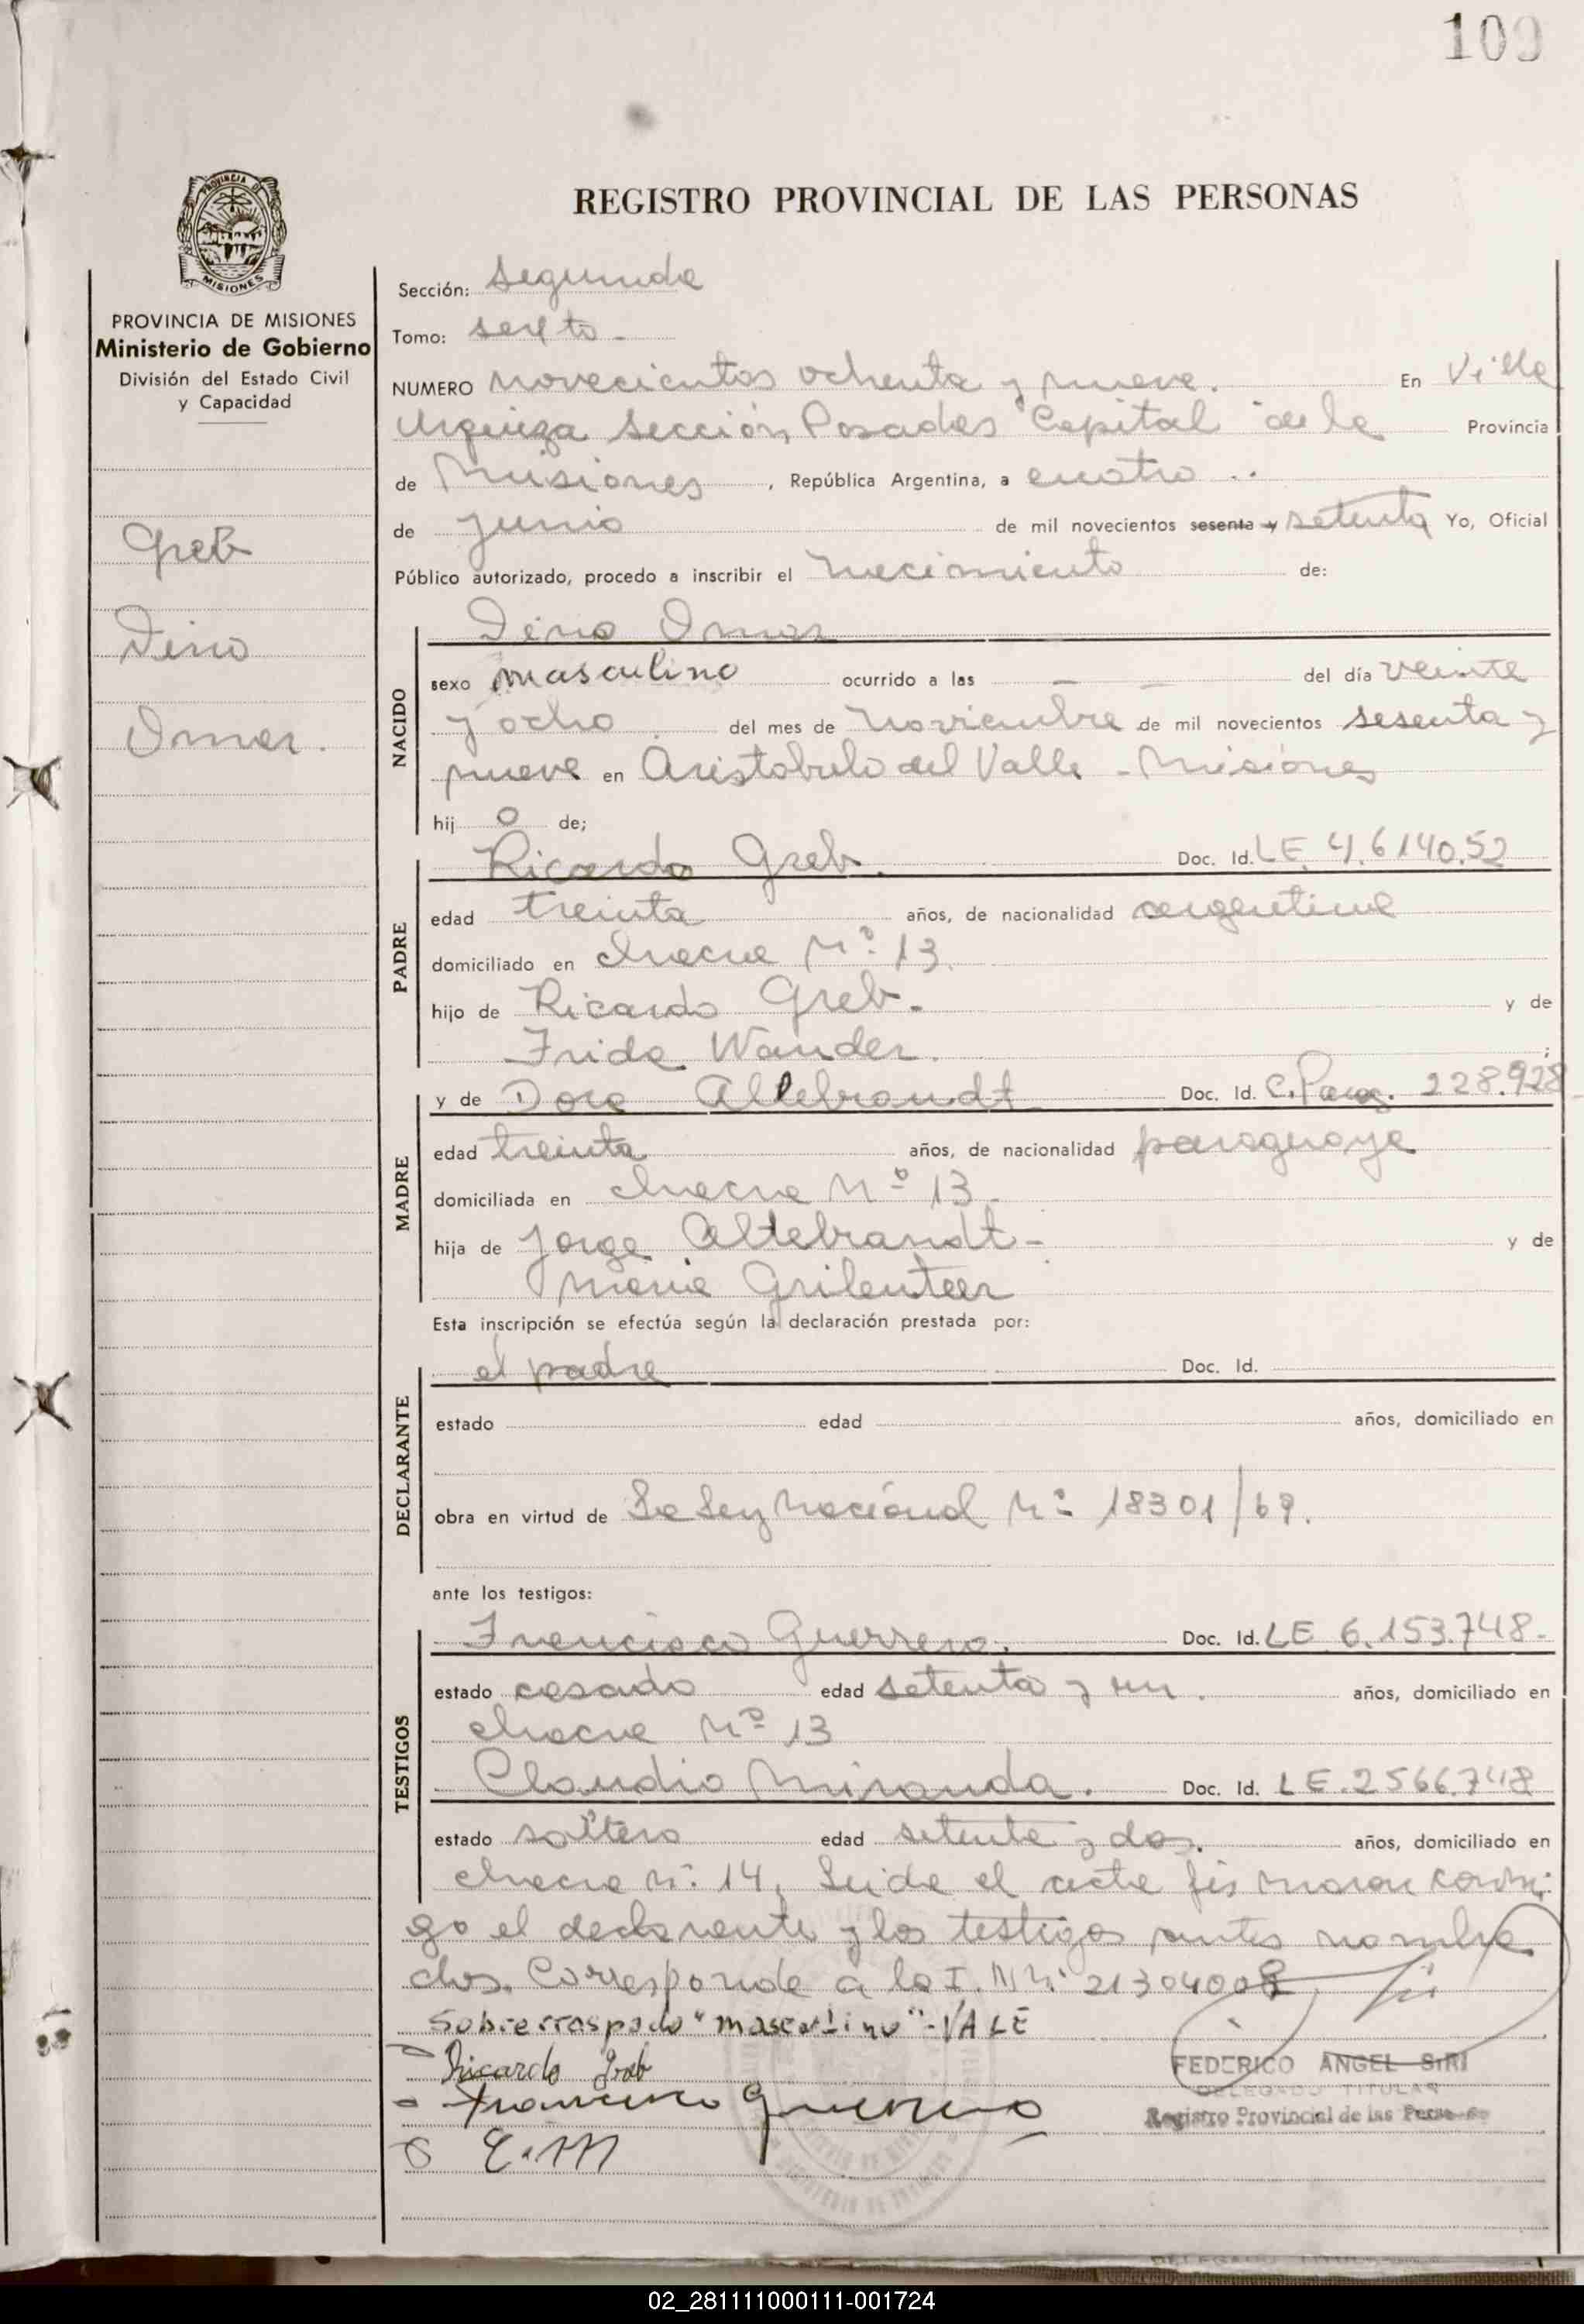 109
REGISTRO PROVINCIAL DE LAS PERSONAS
PROVINCIA DE MISIONES
Ministerio de Gobierno
División del Estado Civil
y Capacidad
Greb
Dino
Omar.
Sección: Segunda
Tomo: sexto -
NUMERO novecientos ochenta y nueve. En Villa
Urquiza Sección Posadas Capital de la Provincia
de Misiones, República Argentina, a cuatro
de junio de mil novecientos sesenta y setenta Yo, Oficial
Público autorizado, procedo a inscribir el nacimiento de:
Dino Omar
NACIDO
sexo masculino ocurrido a las — — del día veinte
y ocho del mes de noviembre de mil novecientos sesenta y
nueve en Aristobulo del Valle - Misiones
hij o de;
PADRE
Ricardo Greb. Doc. Id. LE 4.6140.52
edad treinta años, de nacionalidad argentina
domiciliado en chacra Nº 13.
hijo de Ricardo Greb. y de
Frida Wander. ;
MADRE
y de Dora Altebrandt Doc. Id. C. Parag. 228.928
edad treinta años, de nacionalidad paraguaya
domiciliada en chacra Nº 13.
hija de Jorge Altebrandt - y de
Maria
Esta inscripción se efectúa según la declaración prestada por:
DECLARANTE
el padre Doc. Id.
estado edad años, domiciliado en
obra en virtud de La Ley Nacional Nº 18301/69.
ante los testigos:
TESTIGOS
Francisco Guerrero. Doc. Id. LE 6.153.748.
estado casado edad setenta y un. años, domiciliado en
chacra Nº 13
Claudio Miranda. Doc. Id. LE.2566.748
estado soltero edad setenta y dos. años, domiciliado en
chacra Nº 14. Leida el acta firmaron conmi
go el declarante y los testigos antes nombra
dos. Corresponde a la I. M Nº 21304008
Sobrerraspado "masculino" - VALE
Ricardo Greb
Francisco Guerrero
E.M
FEDERICO ANGEL SIRI
DELEGADO TITULAR
Registro Provincial de las Personas
02_281111000111-001724